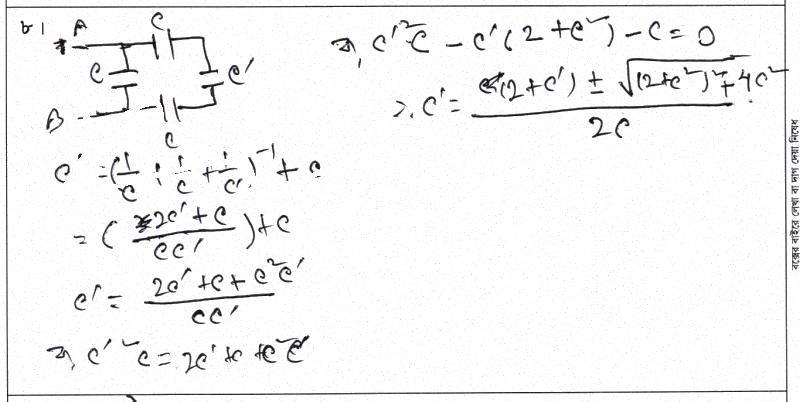 ৮। A
C
C C'
B
C
C' = (1/C + 1/C + 1/C')^-1 + C
= ( 2C' + C / CC' ) + C
C' = 2C' + C + C²C' / CC'
বা, C'²C = 2C' + C + C²C'
বা, C'²C - C'(2 + C²) - C = 0
∴ C' = (2 + C') ± √(2+C²)² + 4C² / 2C
বক্সের বাইরে লেখা বা দাগ দেয়া নিষেধ